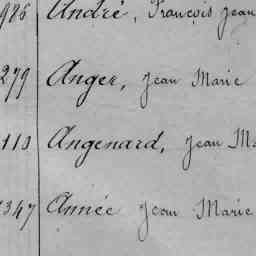 986 André, François Jean
279 Anger, Jean Marie
110 Angenard, Jean
1347 Année Jean Marie